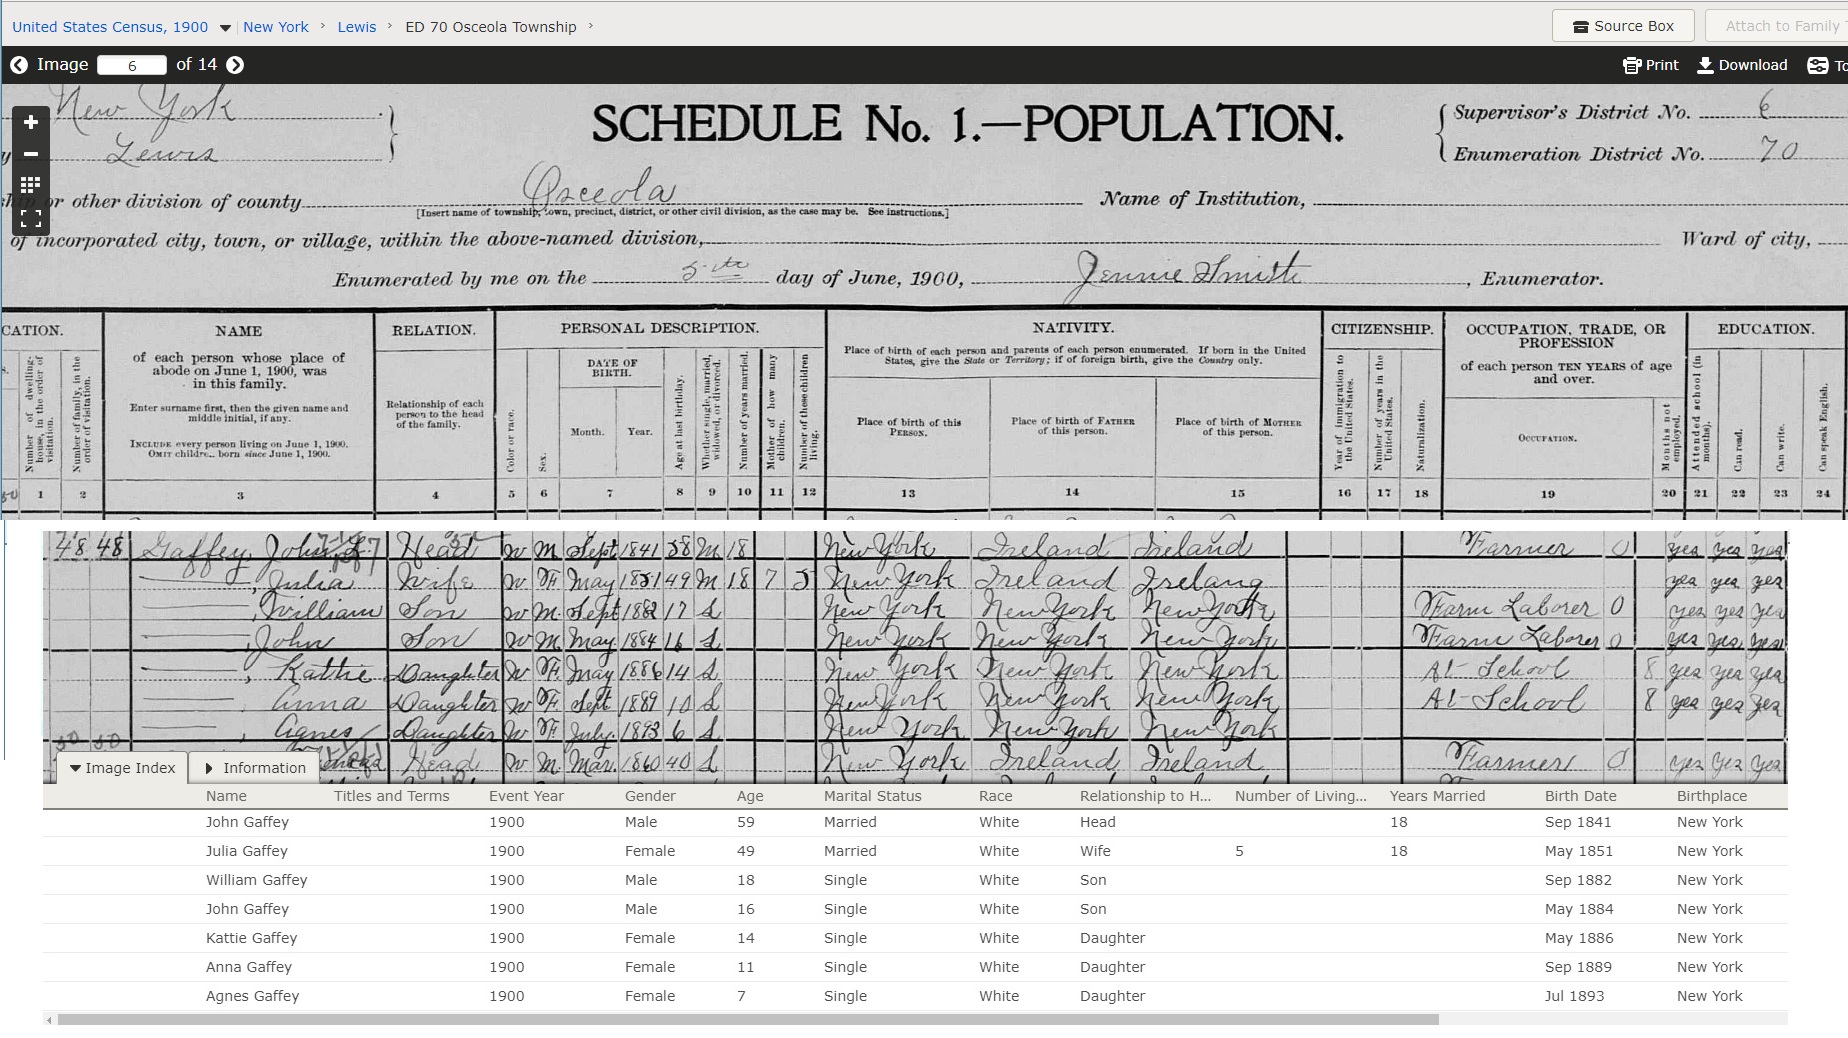 United States Census, 1900 New York › Lewis › ED 70 Osceola Township › Source Box Attach to Family
Image 6 of 14 Print Download To
New York
Lewis
SCHEDULE No. 1.—POPULATION.
Supervisor's District No. 6
Enumeration District No. 70
ship or other division of county Osceola Name of Institution,
[Insert name of township, town, precinct, district, or other civil division, as the case may be. See instructions.]
of incorporated city, town, or village, within the above-named division, Ward of city,
Enumerated by me on the 5th day of June, 1900, Jennie Smith, Enumerator.
CATION. NAME RELATION. PERSONAL DESCRIPTION. NATIVITY. CITIZENSHIP. OCCUPATION, TRADE, OR PROFESSION EDUCATION.
Number of dwelling-house, in the order of visitation.
Number of family, in the order of visitation.
of each person whose place of abode on June 1, 1900, was in this family.
Enter surname first, then the given name and middle initial, if any.
INCLUDE every person living on June 1, 1900.
OMIT children born since June 1, 1900.
Relationship of each person to the head of the family.
Color or race.
Sex.
DATE OF BIRTH.
Month. Year.
Age at last birthday.
Whether single, married, widowed, or divorced.
Number of years married.
Mother of how many children.
Number of these children living.
Place of birth of each person and parents of each person enumerated. If born in the United States, give the State or Territory; if of foreign birth, give the Country only.
Place of birth of this PERSON.
Place of birth of FATHER of this person.
Place of birth of MOTHER of this person.
Year of immigration to the United States.
Number of years in the United States.
Naturalization.
of each person TEN YEARS of age and over.
OCCUPATION.
Months not employed.
Attended school (in months).
Can read.
Can write.
Can speak English.
50 1 2 3 4 5 6 7 8 9 10 11 12 13 14 15 16 17 18 19 20 21 22 23 24
48 48 Gaffey, John Head W M Sept 1841 58 M 18 New York Ireland Ireland Farmer 0 yes yes yes
, Julia Wife W F May 1851 49 M 18 7 5 New York Ireland Ireland yes yes yes
, William Son W M Sept 1882 17 S New York New York New York Farm Laborer 0 yes yes yes
, John Son W M May 1884 16 S New York New York New York Farm Laborer 0 yes yes yes
, Kattie Daughter W F May 1886 14 S New York New York New York At School 8 yes yes yes
, Anna Daughter W F Sept 1889 10 S New York New York New York At School 8 yes yes yes
, Agnes Daughter W F July 1893 6 S New York New York New York
50 50 Head W M Mar 1860 40 S New York Ireland Ireland Farmer 0 yes yes yes
Image Index Information
Name Titles and Terms Event Year Gender Age Marital Status Race Relationship to H... Number of Living... Years Married Birth Date Birthplace
John Gaffey 1900 Male 59 Married White Head 18 Sep 1841 New York
Julia Gaffey 1900 Female 49 Married White Wife 5 18 May 1851 New York
William Gaffey 1900 Male 18 Single White Son Sep 1882 New York
John Gaffey 1900 Male 16 Single White Son May 1884 New York
Kattie Gaffey 1900 Female 14 Single White Daughter May 1886 New York
Anna Gaffey 1900 Female 11 Single White Daughter Sep 1889 New York
Agnes Gaffey 1900 Female 7 Single White Daughter Jul 1893 New York